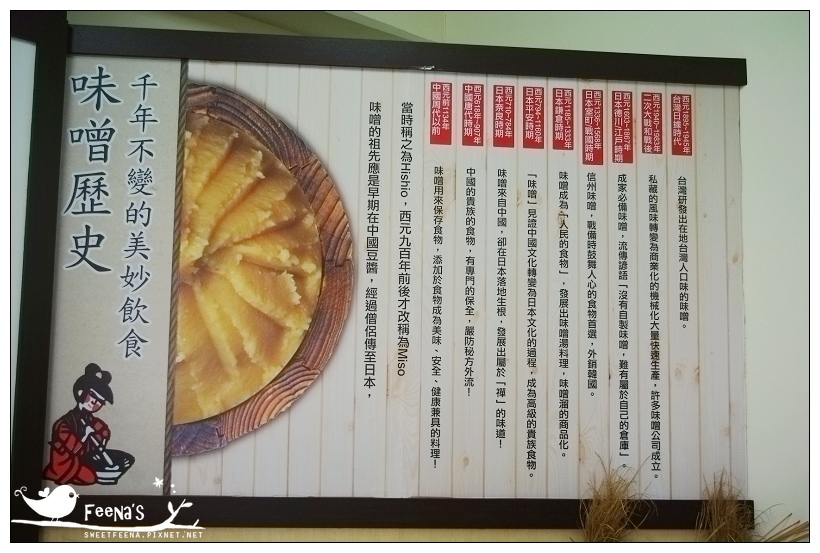 味噌歷史
千年不變的美妙飲食
味噌的祖先應是早期在中國豆醬，經過僧侶傳至日本，
當時稱之為Hishio，西元九百年前後才改稱為Miso
西元前1134年
中國周代以前
味噌用來保存食物，添加於食物成為美味、安全、健康兼具的料理！
西元618年~907年
中國唐代時期
中國的貴族的食物，有專門的保全，嚴防秘方外流！
西元710~784年
日本奈良時期
味噌來自中國，卻在日本落地生根，發展出屬於「禪」的味道！
西元794~1160年
日本平安時期
「味噌」見證中國文化轉變為日本文化的過程，成為高級的貴族食物。
西元1185~1333年
日本鎌倉時期
味噌成為「人民的食物」，發展出味噌湯料理，味噌溜的商品化。
西元1336~1568年
日本室町/戰國時期
信州味噌，戰備時鼓舞人心的食物首選，外銷韓國。
西元1603~1867年
日本德川/江戶時期
成家必備味噌，流傳諺語「沒有自製味噌，難有屬於自己的倉庫」。
西元1940~1963年
二次大戰和戰後
私藏的風味轉變為商業化的機械化大量快速生產，許多味噌公司成立。
西元1895~1945年
台灣日據時代
台灣研發出在地台灣人口味的味噌。
FEENA'S
SWEETFEENA.PIXNET.NET